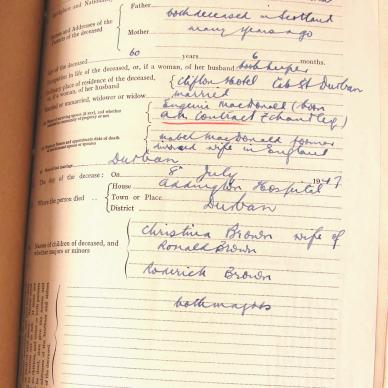 Birthplace and Nationality
Names and Addresses of the
Parents of the deceased
Father
both deceased in Scotland
Mother many years ago
Age of the deceased 60 years 6 months.
Occupation in life of the deceased, or, if a woman, of her husband bookkeeper
Ordinary place of residence of the deceased,
or, if a woman, of her husband
Clifton Hotel Durban
Married or unmarried, widower or widow married
(a) Name of surviving spouse (if any), and whether
married in community of property or not
Eugenie MacDonald (born
contract
(b) Names and approximate date of death
of predeceased spouse or spouses
Isabel MacDonald former
divorced wife in England
Durban
The day of the decease: On 8th July 1947
Where the person died
House Addington Hospital
Town or Place
District Durban
Names of children of deceased, and
whether majors or minors
Christina Brown wife of
Ronald Brown
Roderick Brown
both majors